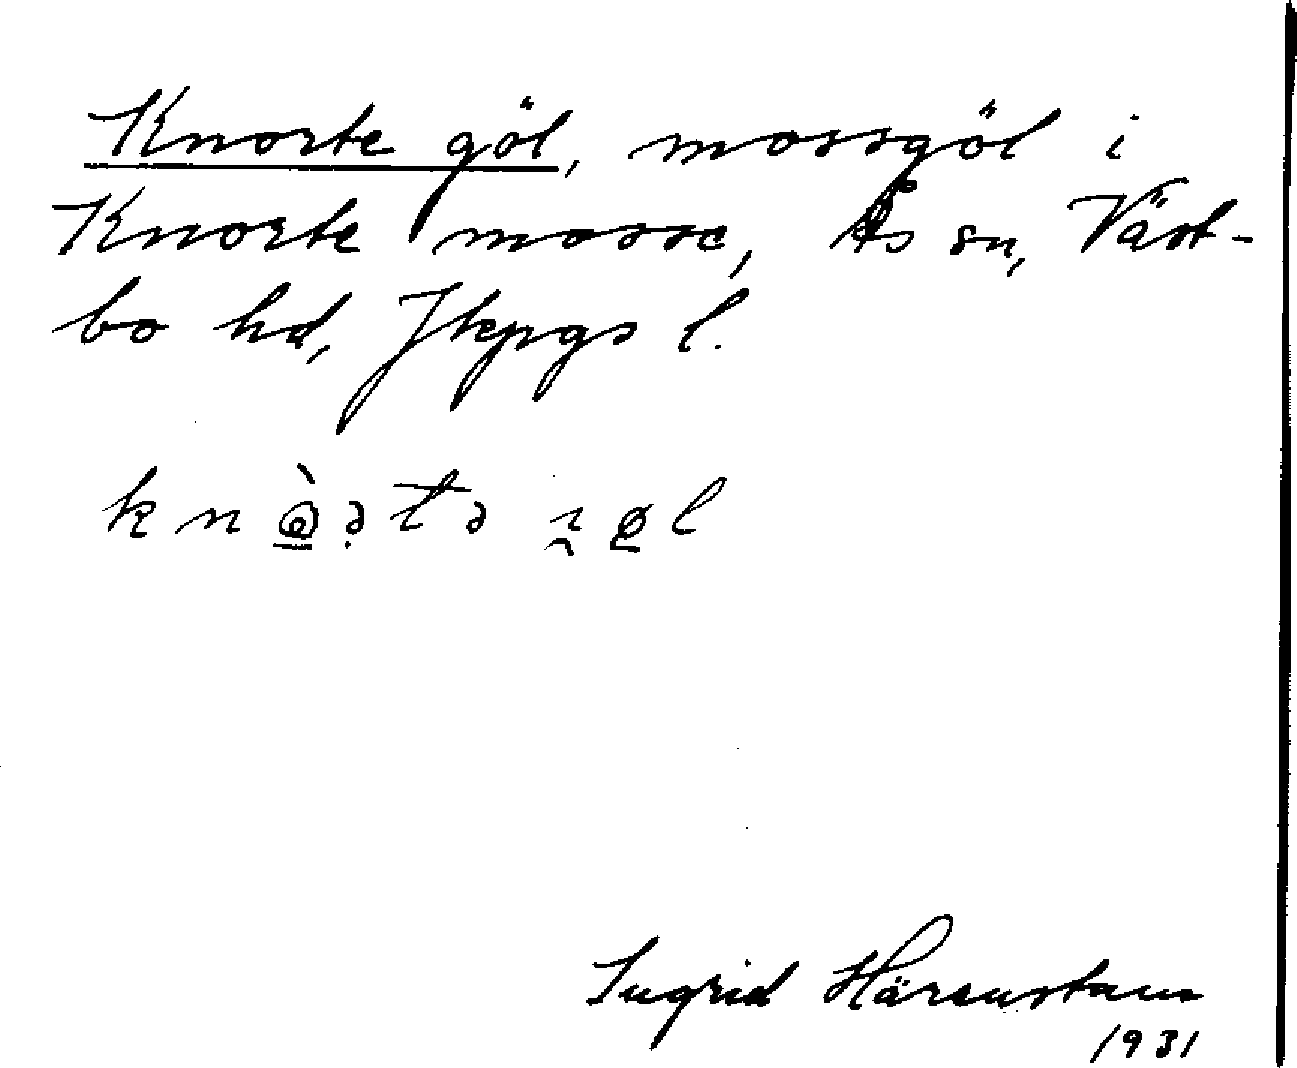 Knorte göl, mossgöl i
Knorte mosse, Ås sn, Väst-
bo hd, Jkpgs l.
Ingrid Härenstam
1931